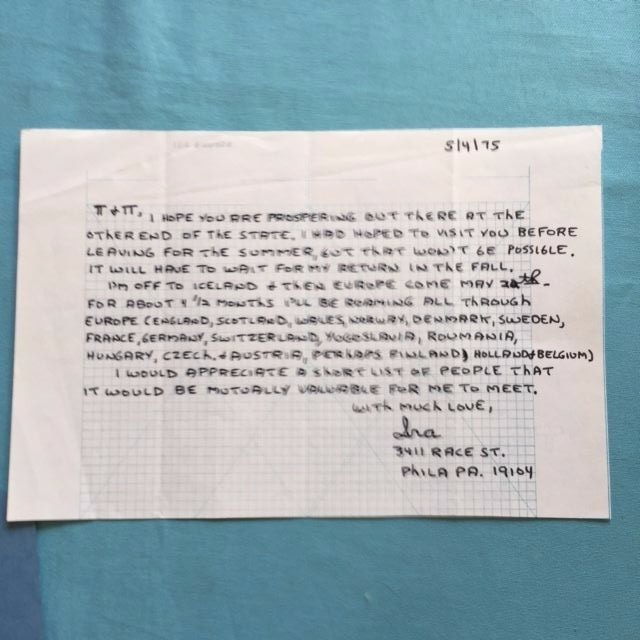 5/4/75
π + π, I HOPE YOU ARE PROSPERING OUT THERE AT THE
OTHER END OF THE STATE. I HAD HOPED TO VISIT YOU BEFORE
LEAVING FOR THE SUMMER, BUT THAT WON'T BE POSSIBLE.
IT WILL HAVE TO WAIT FOR MY RETURN IN THE FALL.
I'M OFF TO ICELAND + THEN EUROPE COME MAY th.
FOR ABOUT 4 1/2 MONTHS I'LL BE ROAMING ALL THROUGH
EUROPE (ENGLAND, SCOTLAND, WALES, NORWAY, DENMARK, SWEDEN,
FRANCE, GERMANY, SWITZERLAND, YUGOSLAVIA, ROUMANIA,
HUNGARY, CZECH, + AUSTRIA, PERHAPS FINLAND, HOLLAND + BELGIUM)
I WOULD APPRECIATE A SHORT LIST OF PEOPLE THAT
IT WOULD BE MUTUALLY VALUABLE FOR ME TO MEET.
WITH MUCH LOVE,
Ira
3411 RACE ST.
PHILA PA. 19104